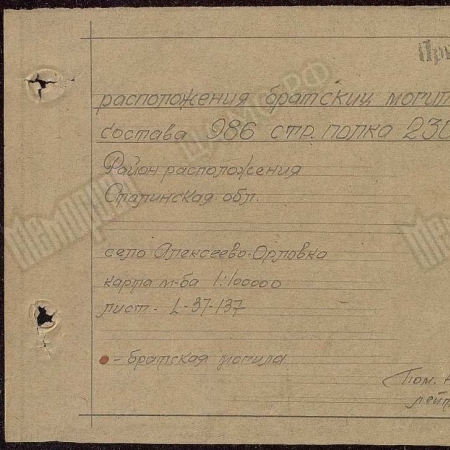 При
расположения братских могил
состава 986 стр. полка 230
Район расположения
Сталинская обл.
село Алексеево-Орловка
карта м-ба 1:100000
лист - L-37-137
- братская могила
Пом. Н
лейт